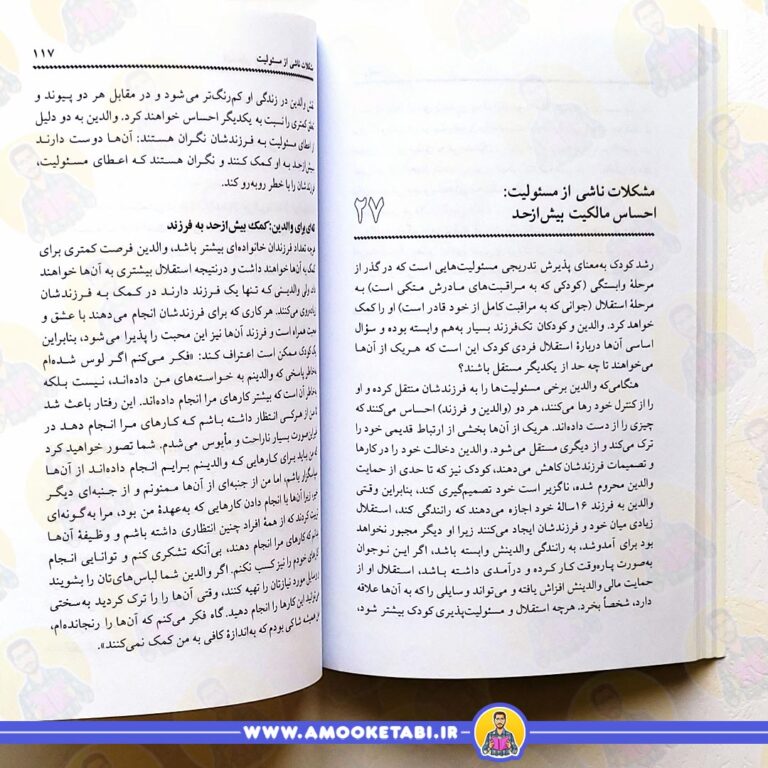 مشکلات ناشی از مسئولیت:
احساس مالکیت بیش‌ازحد
۲۷
رشد کودک به‌معنای پذیرش تدریجی مسئولیت‌هایی است که در گذر از
مرحلهٔ وابستگی (کودکی که به مراقبت‌های مادرش متکی است) به
مرحلهٔ استقلال (جوانی که به مراقبت کامل از خود قادر است) او را کمک
خواهد کرد. والدین و کودکان تک‌فرزند بسیار به‌هم وابسته بوده و سؤال
اساسی آن‌ها دربارهٔ استقلال فردی کودک این است که هریک از آن‌ها
می‌خواهند تا چه حد از یکدیگر مستقل باشند؟
هنگامی‌که والدین برخی مسئولیت‌ها را به فرزندشان منتقل کرده و او
را از کنترل خود رها می‌کنند، هر دو (والدین و فرزند) احساس می‌کنند که
چیزی را از دست داده‌اند. هریک از آن‌ها بخشی از ارتباط قدیمی خود را
ترک می‌کند و از دیگری مستقل می‌شود. والدین دخالت خود را در کارها
و تصمیمات فرزندشان کاهش می‌دهند، کودک نیز که تا حدی از حمایت
والدین محروم شده، ناگزیر است خود تصمیم‌گیری کند، بنابراین وقتی
والدین به فرزند ۱۶سالهٔ خود اجازه می‌دهند که رانندگی کند، استقلال
زیادی میان خود و فرزندشان ایجاد می‌کنند زیرا او دیگر مجبور نخواهد
بود برای آمدوشد، به رانندگی والدینش وابسته باشد، اگر این نوجوان
به‌صورت پاره‌وقت کار کرده و درآمدی داشته باشد، استقلال او از
حمایت مالی والدینش افزایش یافته و می‌تواند وسایلی را که به آن‌ها علاقه
دارد، شخصاً بخرد. هرچه استقلال و مسئولیت‌پذیری کودک بیشتر شود،
مشکلات ناشی از مسئولیت
۱۱۷
نقش والدین در زندگی او کم‌رنگ‌تر می‌شود و در مقابل هر دو پیوند و
کمتری را نسبت به یکدیگر احساس خواهند کرد. والدین به دو دلیل
از اعطای مسئولیت به فرزندشان نگران هستند: آن‌ها دوست دارند
بیش‌ازحد به او کمک کنند و نگران هستند که اعطای مسئولیت،
فرزندشان را با خطر روبه‌رو کند.
برای والدین: کمک بیش‌ازحد به فرزند
هرچه تعداد فرزندان خانواده‌ای بیشتر باشد، والدین فرصت کمتری برای
کمک به آن‌ها خواهند داشت و درنتیجه استقلال بیشتری به آن‌ها خواهند
ولی والدینی که تنها یک فرزند دارند در کمک به فرزندشان
زیاده‌روی می‌کنند. هر کاری که برای فرزندشان انجام می‌دهند با عشق و
محبت همراه است و فرزند آن‌ها نیز این محبت را پذیرا می‌شود، بنابراین
یک کودک ممکن است اعتراف کند: «فکر می‌کنم اگر لوس شده‌ام
به‌خاطر پاسخی که والدینم به خواسته‌های من داده‌اند، نیست بلکه
به‌خاطر آن است که بیشتر کارهای مرا انجام داده‌اند. این رفتار باعث شد
تا من از هرکسی انتظار داشته باشم که کارهای مرا انجام دهد در
غیراین‌صورت بسیار ناراحت و مأیوس می‌شدم. شما تصور خواهید کرد
که من باید برای کارهایی که والدینم برایم انجام داده‌اند از آن‌ها
سپاسگزار باشم، اما من از جنبه‌ای از آن‌ها ممنونم و از جنبه‌ای دیگر
زیرا آن‌ها با انجام دادن کارهایی که به‌عهدهٔ من بود، مرا به‌گونه‌ای
تربیت کردند که از همهٔ افراد چنین انتظاری داشته باشم و وظیفهٔ آن‌ها
که کارهای مرا انجام دهند، بی‌آنکه تشکری کنم و توانایی انجام
کارهای خودم را نیز کسب نکنم. اگر والدین شما لباس‌های‌تان را بشویند
و وسایل مورد نیازتان را تهیه کنند، وقتی آن‌ها را ترک کردید به‌سختی
می‌توانید این کارها را انجام دهید. گاه فکر می‌کنم که آن‌ها را رنجانده‌ام،
همیشه شاکی بودم که به‌اندازهٔ کافی به من کمک نمی‌کنند».
WWW.AMOOKETABI.IR